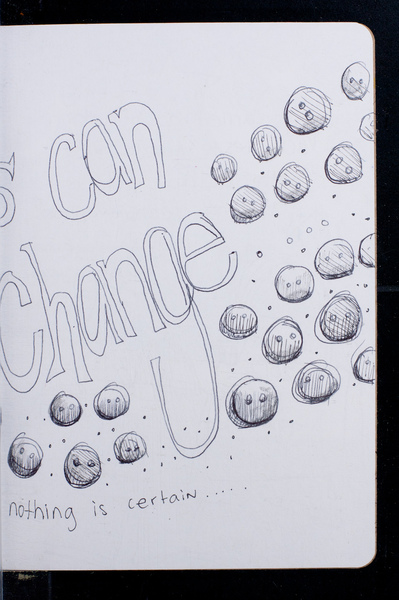 can
change
nothing is certain......